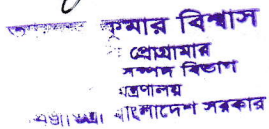 কুমার বিশ্বাস
প্রোগ্রামার
সম্পদ বিভাগ
মন্ত্রণালয়
বাংলাদেশ সরকার